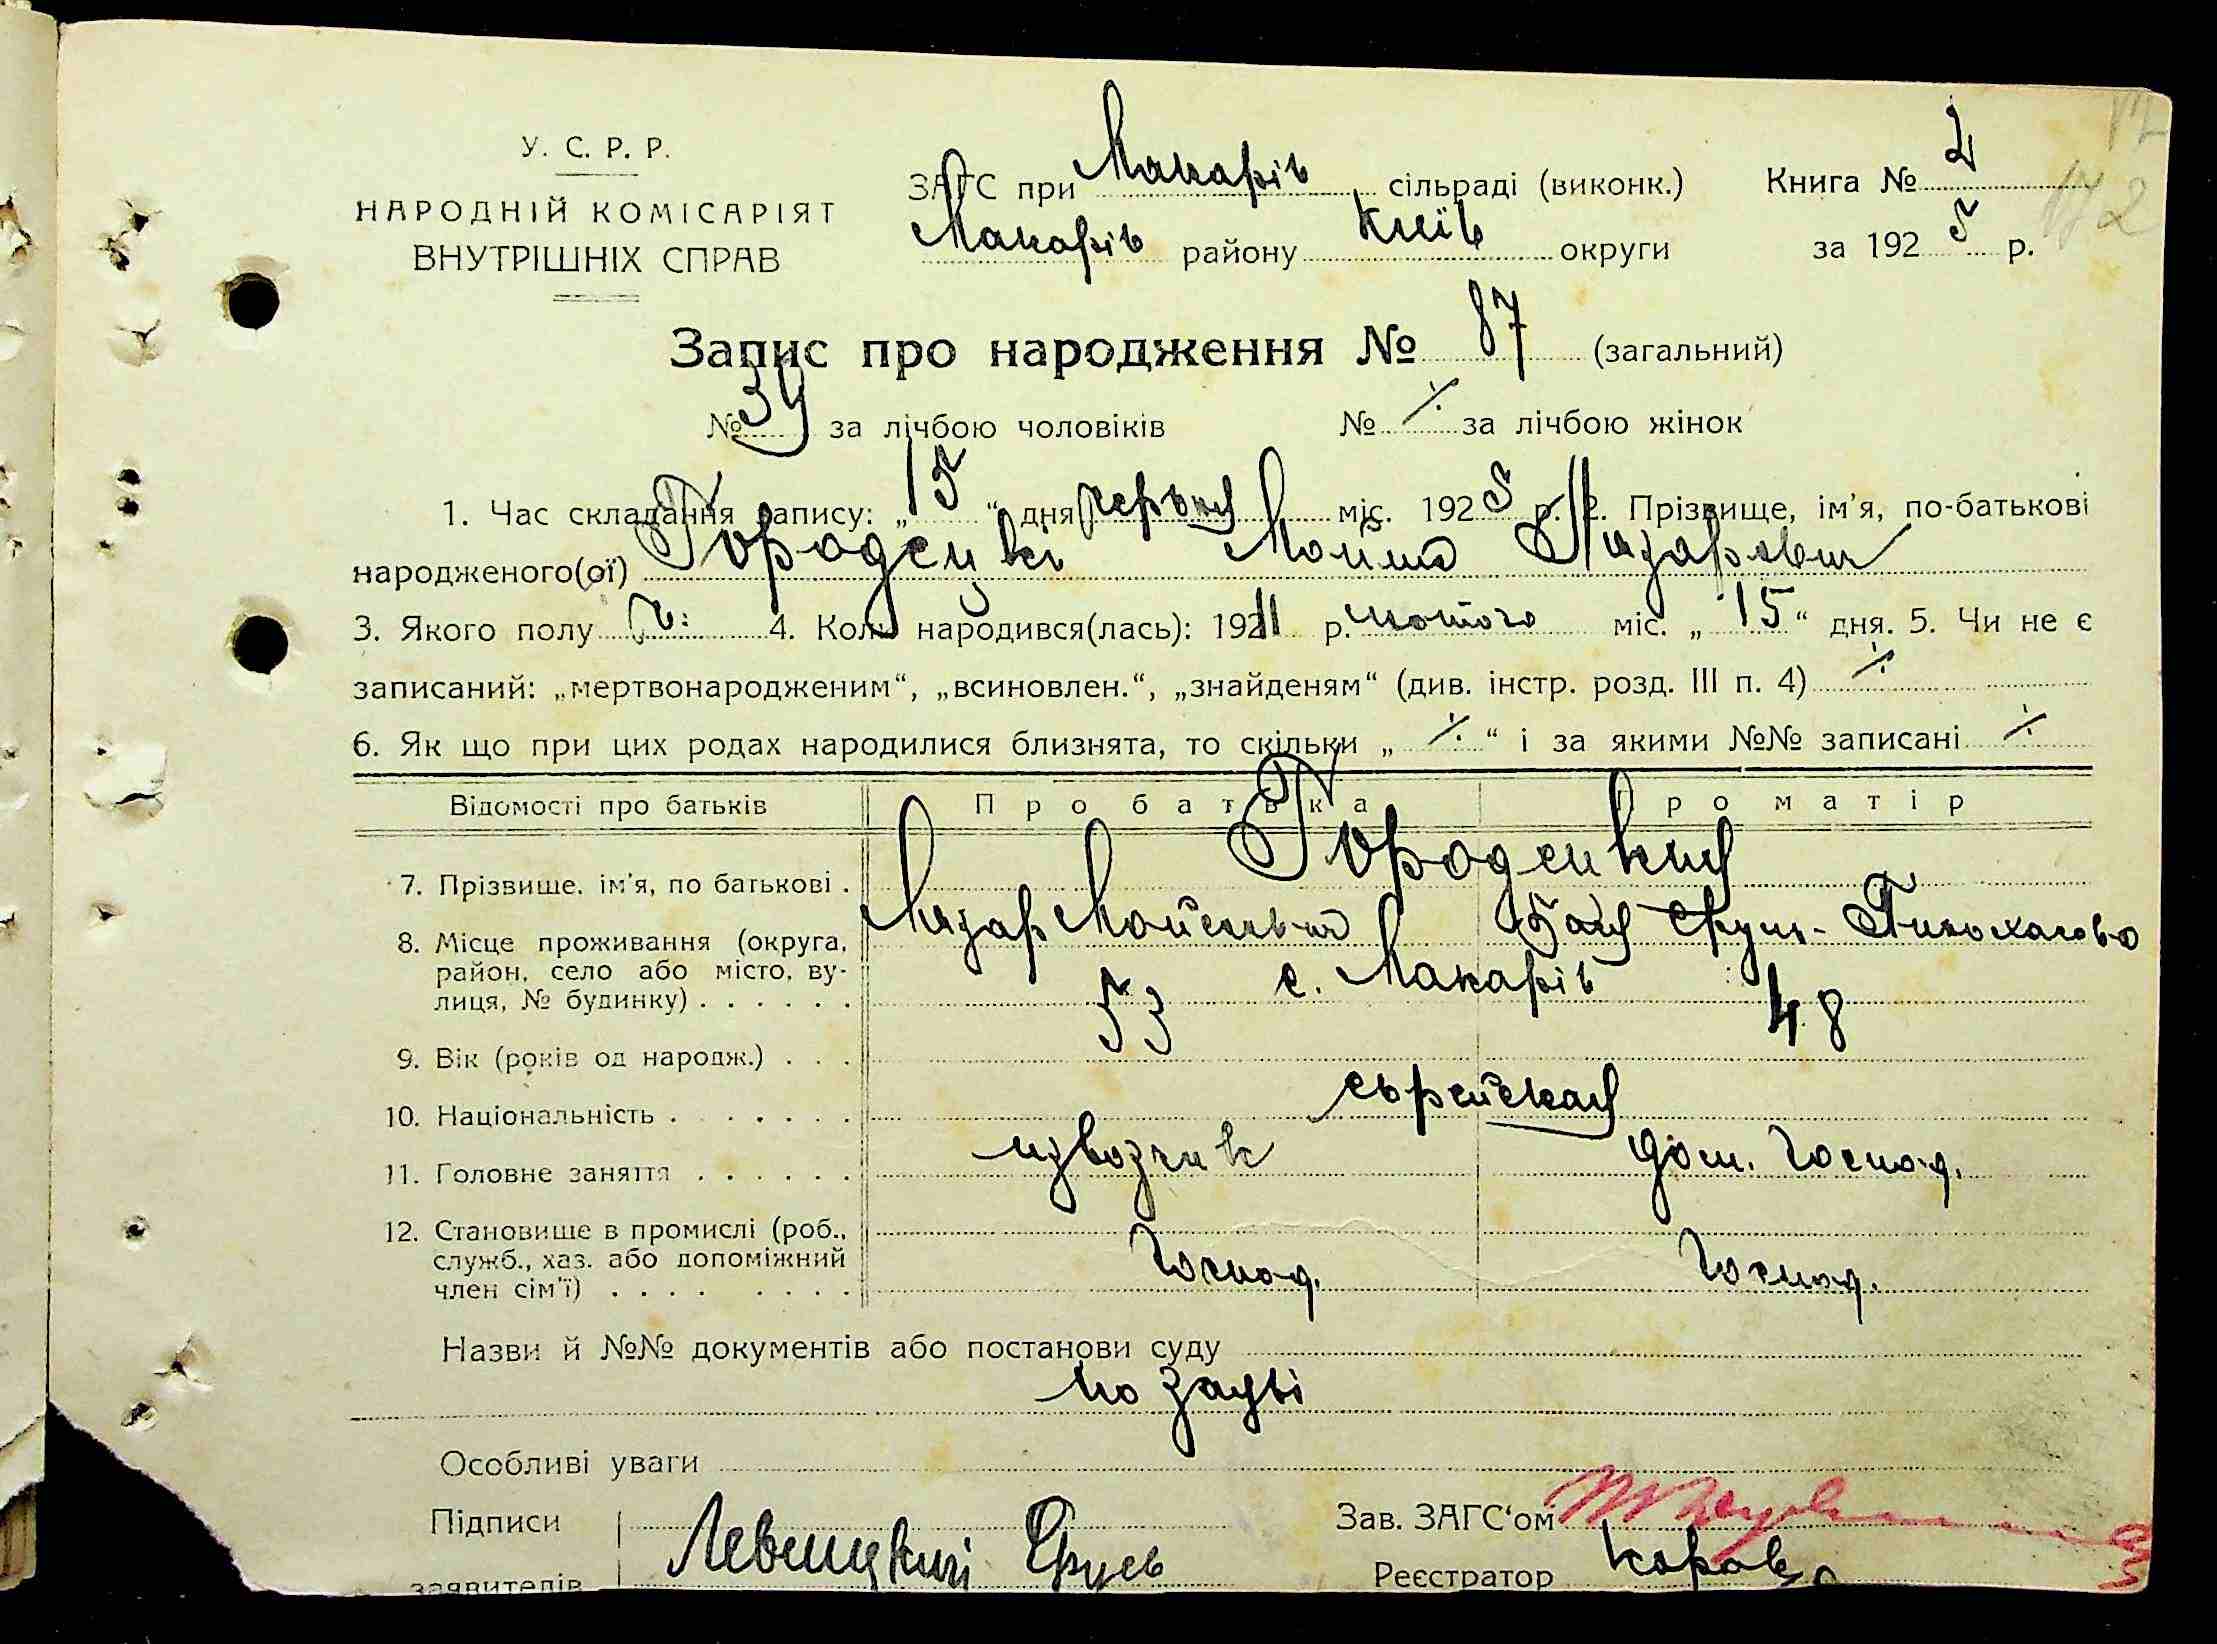 У. С. Р. Р.
НАРОДНІЙ КОМІСАРІЯТ
ВНУТРІШНІХ СПРАВ
ЗАГС при Макарів сільраді (виконк.) Книга № 2
Макарів району Київ округи за 1925 р.
Запис про народження № 87 (загальний)
№ 39 за лічбою чоловіків № ·/· за лічбою жінок
1. Час складання запису: „15“ дня червня міс. 1925 р. 2. Прізвище, ім'я, по-батькові
народженого(ої) Городецкі Мойше Лазарович
3. Якого полу ч: 4. Коли народився(лась): 1911 р. лютого міс. „15“ дня. 5. Чи не є
записаний: „мертвонародженим“, „всиновлен.“, „знайденям“ (див. інстр. розд. III п. 4) ·/·
6. Як що при цих родах народилися близнята, то скільки „ ·/· “ і за якими №№ записані ·/·
Відомості про батьків Про батька Про матір
7. Прізвище, ім'я, по батькові . Городецкия
Лазар Мойсеевич
8. Місце проживання (округа,
район, село або місто, вулиця, № будинку) . . . . . . с. Макарів
9. Вік (років од народж.) . . . 53 48
10. Національність . . . . . . . еврейская
11. Головне заняття . . . . . . извозчик дом. господ.
12. Становище в промислі (роб.,
служб., хаз. або допоміжний
член сім'ї) . . . . . . . . господ. господ.
Назви й №№ документів або постанови суду
по заяві
Особливі уваги
Підписи
заявителів Левицкий
Зав. ЗАГС'ом
Реєстратор